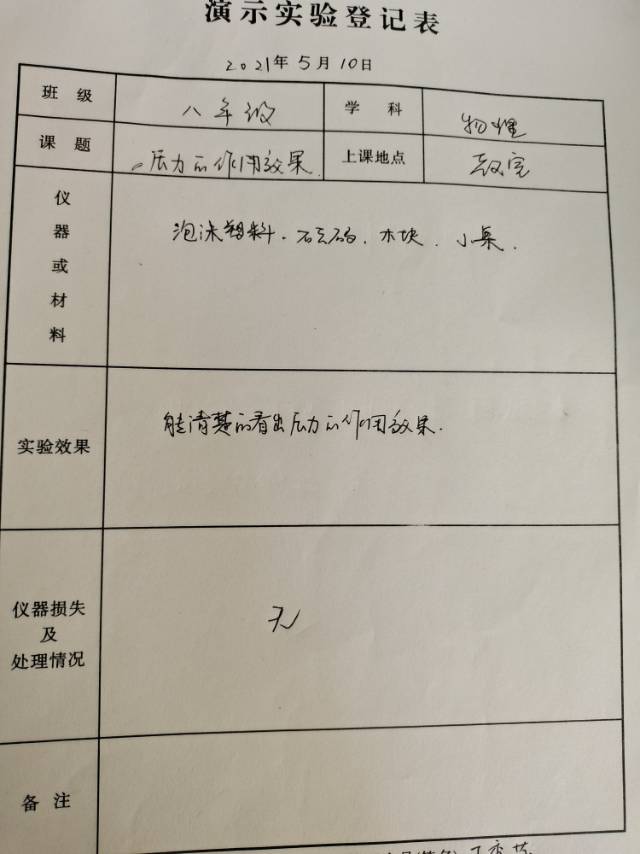 演示实验登记表
2021年5月10日
班级 八年级 学科 物理
课题 压力的作用效果. 上课地点 教室
仪器或材料 泡沫塑料.砝码.木块.小桌.
实验效果 能清楚的看出压力的作用效果.
仪器损失
及
处理情况
无
备注